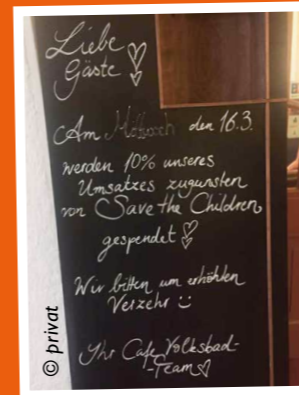 Liebe
Gäste
Am Mittwoch den 16.3.
werden 10% unseres
Umsatzes zugunsten
von Save the Children
gespendet
Wir bitten um erhöhten
Verzehr :)
Ihr Cafe Volksbad-
-Team
© privat